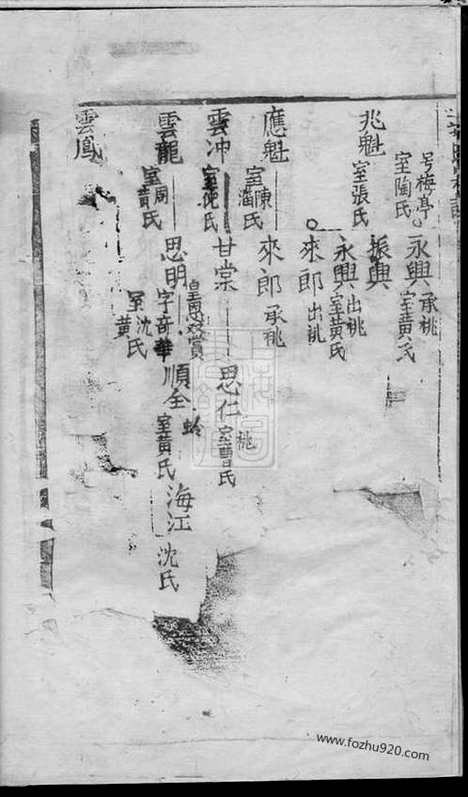 号梅亭
室陶氏
永興 承桃
室黃氏
兆魁 室張氏
振興
永興 出桃
室黃氏
應魁 室陳潘氏
來郎 出
來郎 承桃
雲冲 室沈氏
甘棠
思仁 桃
室曹氏
雲龍 室周黃氏
思明
皇恩欽賞
字奇華
室沈黃氏
順全 蛉
室黃氏
海江 沈氏
雲鳳
www.fozhu920.com